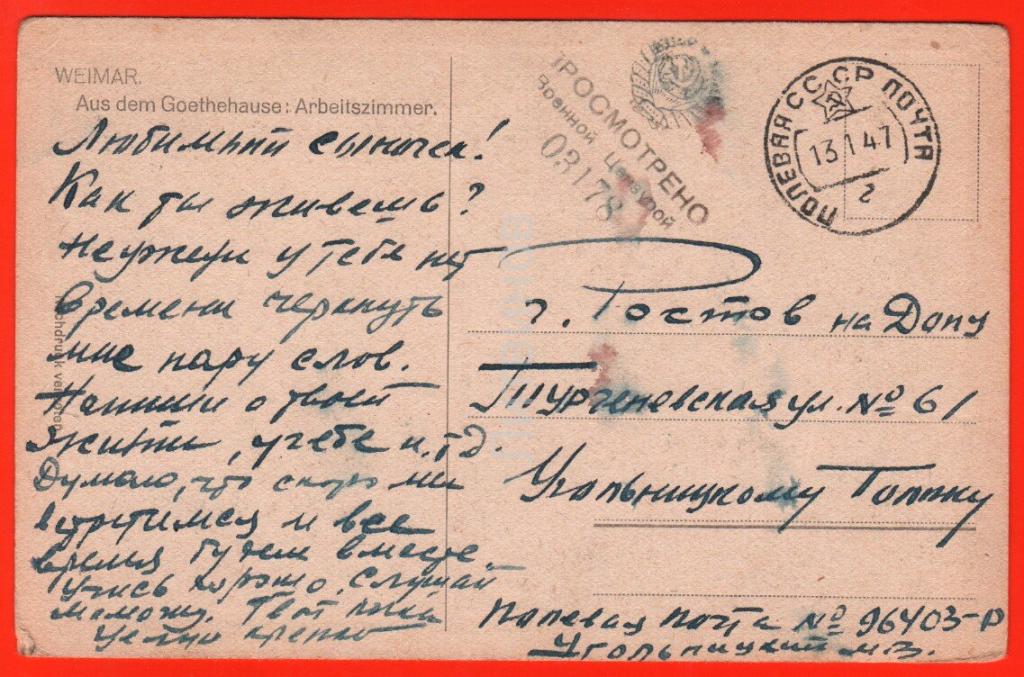 WEIMAR.
Aus dem Goethehause: Arbeitszimmer.
Любимый сыночек!
Как ты живешь?
Неужели у тебя нет
времени черкнуть
мне пару слов.
Напиши о твоей
жизни, учебе и т.д.
Думаю, что скоро мы
встретимся и все
время будем вместе
Учись хорошо. Слушай
мамочку. Твой папка
Целую крепко
ПРОСМОТРЕНО
Военной Цензурой
03178
ПОЛЕВАЯ ПОЧТА СССР
13 1 47
г
г. Ростов на Дону
Тургеневская ул. № 61
Угольницкому Толику
Полевая почта № 96403-Р
Угольницкий М.В.